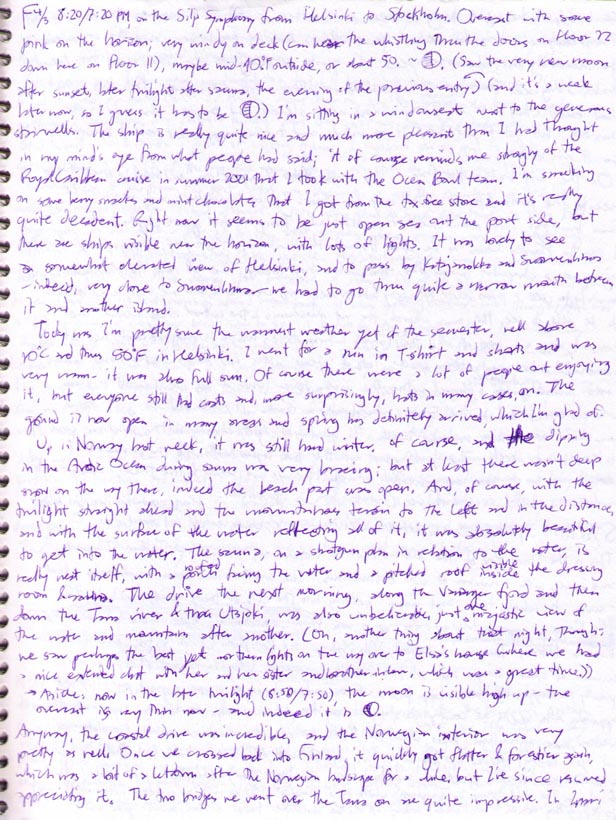 F 4/3 8:20/7:20 PM on the Silja Symphony from Helsinki to Stockholm. Overcast with some
pink on the horizon; very windy on deck (can hear the whistling thru the doors on floor 12
down here on floor 11), maybe mid-40°F outside, or about 50. ~ (Saw the very new moon
after sunset, later twilight after sauna, the evening of the previous entry) (and it's a week
later now, so I guess it has to be .) I'm sitting in a windowseat next to the
stairwells. The ship is really quite nice and much more pleasant than I had thought
in my mind's eye from what people had said; it of course reminds me strongly of the
Royal Caribbean cruise in summer 2001 that I took with the Ocean Bowl team. I'm snacking
on some berry smoothies and mint chocolates that I got from the tax-free store and it's really
quite decadent. Right now it seems to be just open sea out the port side, but
there are ships visible near the horizon, with lots of lights. It was lovely to see
a somewhat elevated view of Helsinki, and to pass by Katajanokka and Suomenlinna
- indeed, very close to Suomenlinna - we had to go thru quite a narrow mouth between
it and another island.
Today was I'm pretty sure the warmest weather yet of the semester, well above
10°C and thus 50°F in Helsinki. I went for a run in T-shirt and shorts and was
very warm - it was also full sun. Of course there were a lot of people out enjoying
it, but everyone still had coats and, more surprisingly, hats in many cases, on. The
ground is now open in many areas and spring has definitely arrived, which I'm glad of.
Up in Norway last week, it was still hard winter, of course, and dipping
in the Arctic Ocean during sauna was very bracing; but at least there wasn't deep
snow on the way there, indeed the beach part was open. And, of course, with the
twilight straight ahead and the mountainous terrain to the left and in the distance,
and with the surface of the water reflecting all of it, it was absolutely beautiful
to get into the water. The sauna, on a shotgun plan in relation to the water, is
really neat itself, with a roofed porch facing the water and a pitched roof visible inside the dressing
room & sauna. The drive the next morning, along the Varanger fjord and then
down the Tana river & thru Utsjoki, was also unbelievable, just one majestic view of
the water and mountains after another. (Oh, another thing about that night, though:
we saw perhaps the best yet northern lights on the way over to Elsa's house (where we had
a nice extended chat with her and her sister and brother-in-law, which was a great time.))
→ Aside: now in the late twilight (8:50/7:50), the moon is visible high up - the
overcast is very thin now - and indeed it is .
Anyway, the coastal drive was incredible, and the Norwegian interior was very
pretty as well. Once we crossed back into Finland, it quickly got flatter & forestier again,
which was a bit of a letdown after the Norwegian landscape for a while, but I've since resumed
appreciating it. The two bridges we went over the Tana on are quite impressive. In Inari